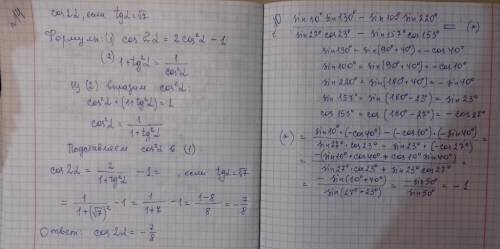 cos2α, если tgα=√7
Формулы: (1) cos 2α = 2cos²α - 1
(2) 1+tg²α = 1/cos²α
Из (2) выразим cos²α:
cos²α · (1+tg²α) = 1
cos²α = 1/(1+tg²α)
Подставляем cos²α в (1)
cos2α = 2/(1+tg²α) - 1 = , если tgα=√7
= 1/(1+(√7)²) - 1 = 1/(1+7) - 1 = (1-8)/8 = -7/8
Ответ: cos 2α = -7/8
(sin10° sin130° - sin100° sin220°)/(sin27° cos23° - sin157° cos153°) = (*)
sin130° = sin(90°+40°) = -cos40°
sin100° = sin(90°+10°) = -cos10°
sin220° = sin(180°+40°) = -sin40°
sin157° = sin(180°-23°) = sin23°
cos153° = cos(180°-27°) = -cos27°
(*) = (sin10° · (-cos40°) - (-cos10°) · (-sin40°))/(sin27° · cos23° - sin23° · (-cos27°)) =
= (-(sin10° · cos40° + cos10° sin40°))/(sin27° · cos23° + sin23° cos27°) =
= (-sin(10°+40°))/(sin(27°+23°)) = (-sin50°)/(sin50°) = -1